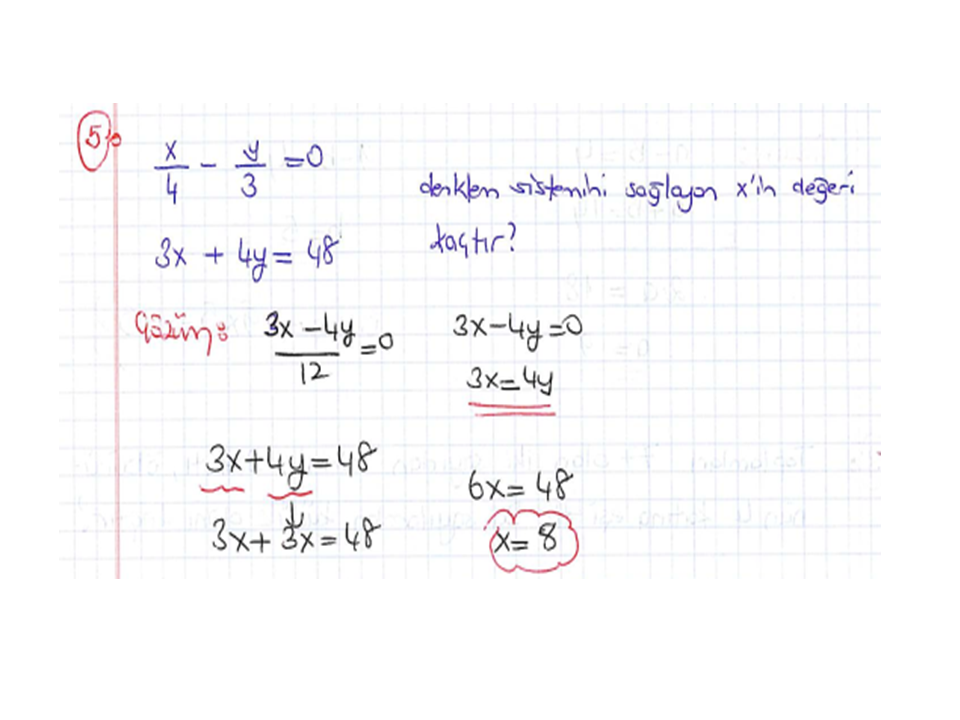 5)
x/4 - y/3 = 0
denklem sistemini sağlayan x'in değeri
3x + 4y = 48
kaçtır?
Çözüm:
(3x - 4y)/12 = 0
3x - 4y = 0
3x = 4y
3x + 4y = 48
6x = 48
3x + 3x = 48
x = 8